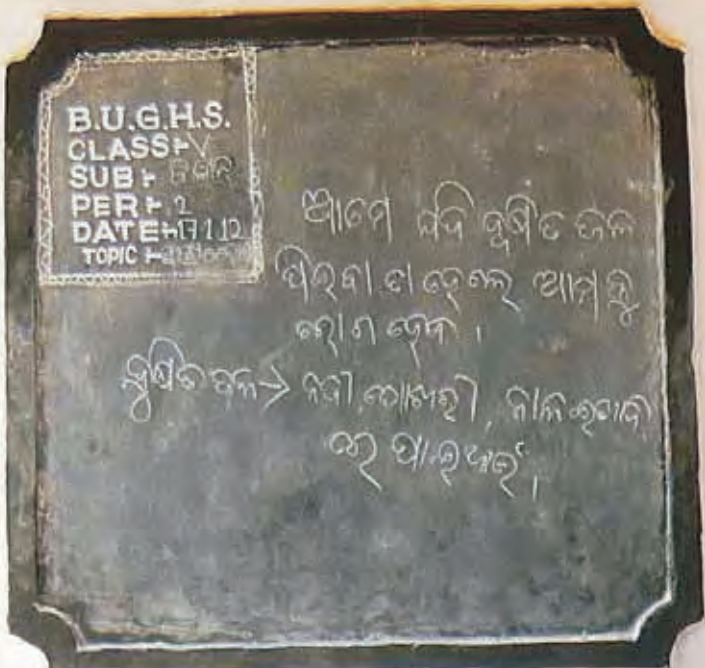 B.U.G.H.S.
CLASS:- V
SUB:-
PER:- 2
DATE:- 17.1.12
TOPIC:-
ଆମେ ଯଦି ଦୂଷିତ ଜଳ
ପିଇବା ତା ହେଲେ ଆମ କୁ
ରୋଗ ହେବ ।
ଦୂଷିତ ଜଳ → ନଦୀ, ପୋଖରୀ, ନାଳ
ରେ ପାଇଥାଉ ।